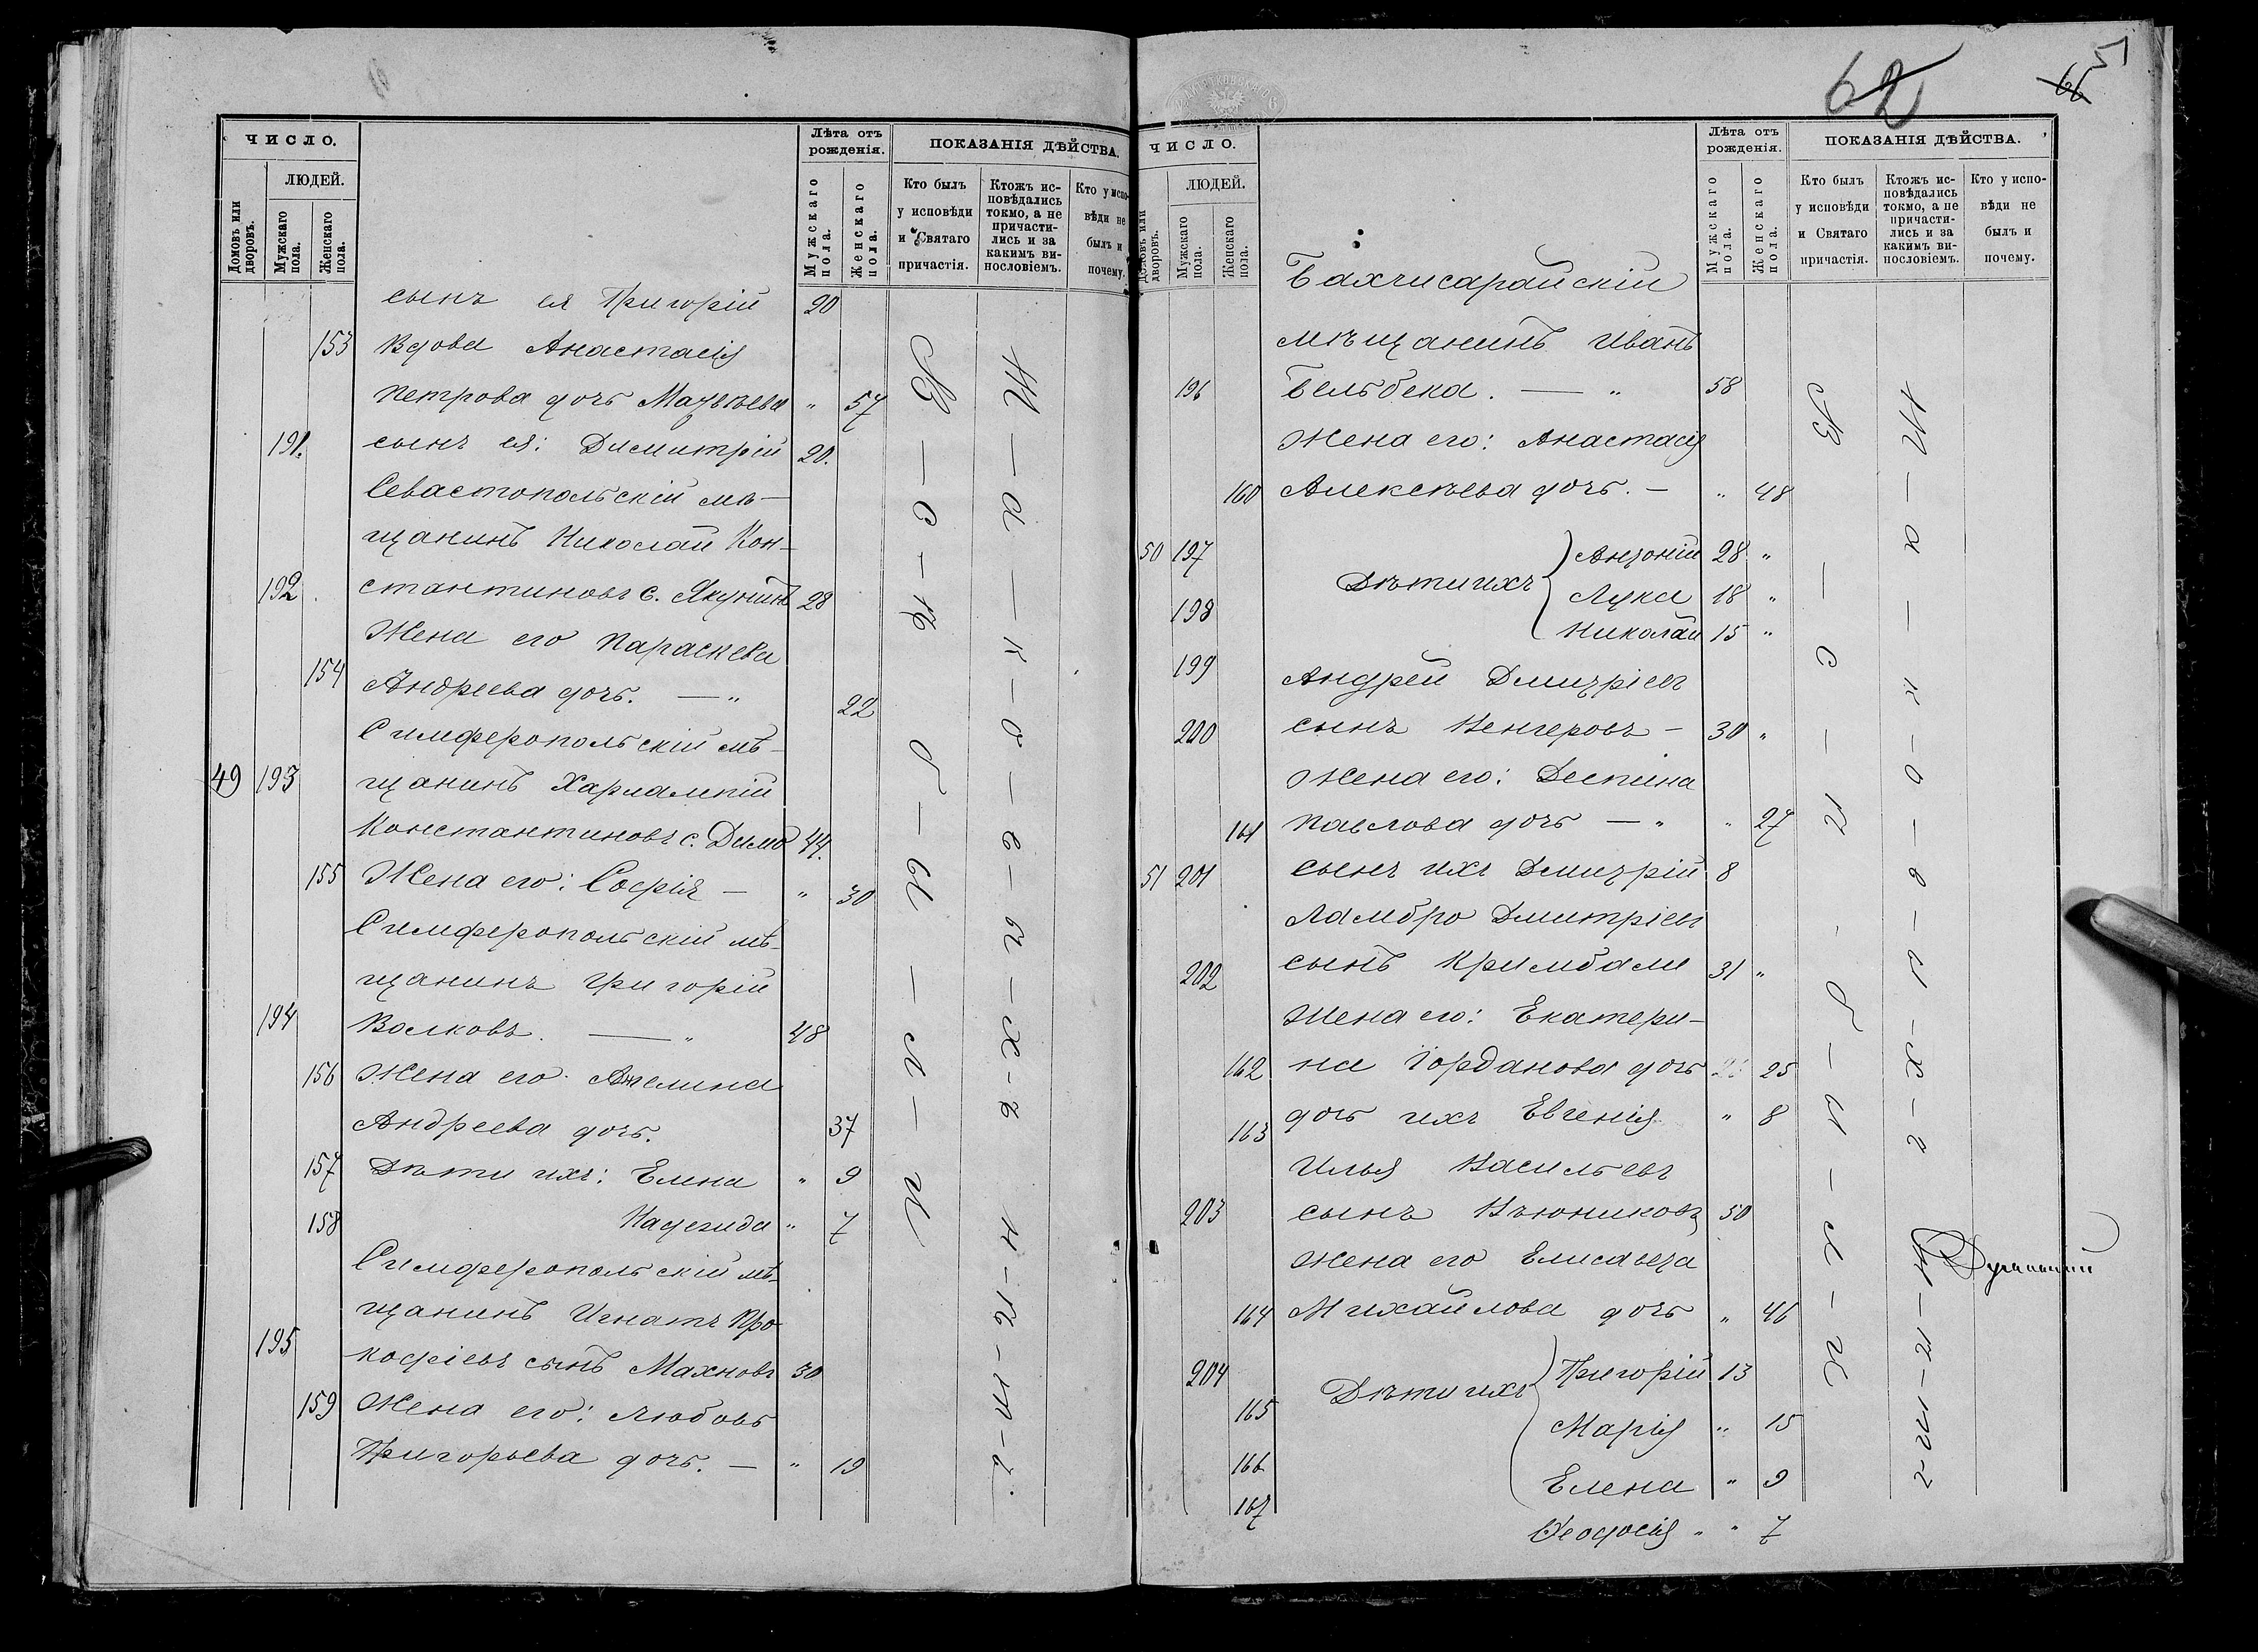 62
66
51
ЧИСЛО.
ЛЮДЕЙ.
Домовъ или дворовъ.
Мужскаго пола.
Женскаго пола.
Лѣта отъ рожденія.
Мужскаго пола.
Женскаго пола.
ПОКАЗАНІЯ ДѢЙСТВА.
Кто былъ у исповѣди и Святаго причастія.
Ктожъ исповѣдались токмо, а не причастились и за какимъ винословіемъ.
Кто у исповѣди не былъ и почему.
сынъ ея Григорій 20
153 Вдова Анастасія
Петрова дочь " 57
191. сынъ ея: Димитрій 20.
Севастопольскій мѣ-
щанинъ Николай Кон-
192 стантиновъ с. Якунинъ 28
Жена его Параскева
154 Андреева дочь. — " 22
Симферопольскій мѣ-
49 193 щанинъ Харлампій
Константиновъ с. Димо 44.
155 Жена его: Софія — " 30
Симферопольскій мѣ-
щанинъ Григорій
194 Волковъ. — " 48
156 Жена его Ангелина
Андреева дочь. 37
157 Дѣти ихъ: Елена " 9
158 Надежда " 7
Симферопольскій мѣ-
щанинъ Игнатъ Про-
195 кофіевъ сынъ Махновъ 30
159 Жена его: Любовь
Григорьева дочь. — " 19
ЧИСЛО.
ЛЮДЕЙ.
Домовъ или дворовъ.
Мужскаго пола.
Женскаго пола.
Лѣта отъ рожденія.
Мужскаго пола.
Женскаго пола.
ПОКАЗАНІЯ ДѢЙСТВА.
Кто былъ у исповѣди и Святаго причастія.
Ктожъ исповѣдались токмо, а не причастились и за какимъ винословіемъ.
Кто у исповѣди не былъ и почему.
Бахчисарайскій
мѣщанинъ Иванъ
196 Бельбека. — " 58
Жена его: Анастасія
160 Алексѣева дочь. — " 48
50 197 Антоній 28 "
Дѣти ихъ
198 Лука 18 "
Николай 15 "
199 Андрей Дмитріевъ
200 сынъ Венгеровъ — 30 "
Жена его: Деспина
161 Павлова дочь — " " 27
51 201 сынъ ихъ Дмитрій 8
Ламбро Дмитріевъ
202 сынъ Кримбали 31 "
Жена его: Екатери-
162 на Іорданова дочь 25
163 дочь ихъ Евгенія " 8
Илья Васильевъ
203 сынъ Вьюниковъ 50
Жена его Елисавета
164 Михайлова дочь " 46
204 Григорій 13
Дѣти ихъ
165 Марія " 15
166 Елена " 9
167 Ѳеодосія " " 7